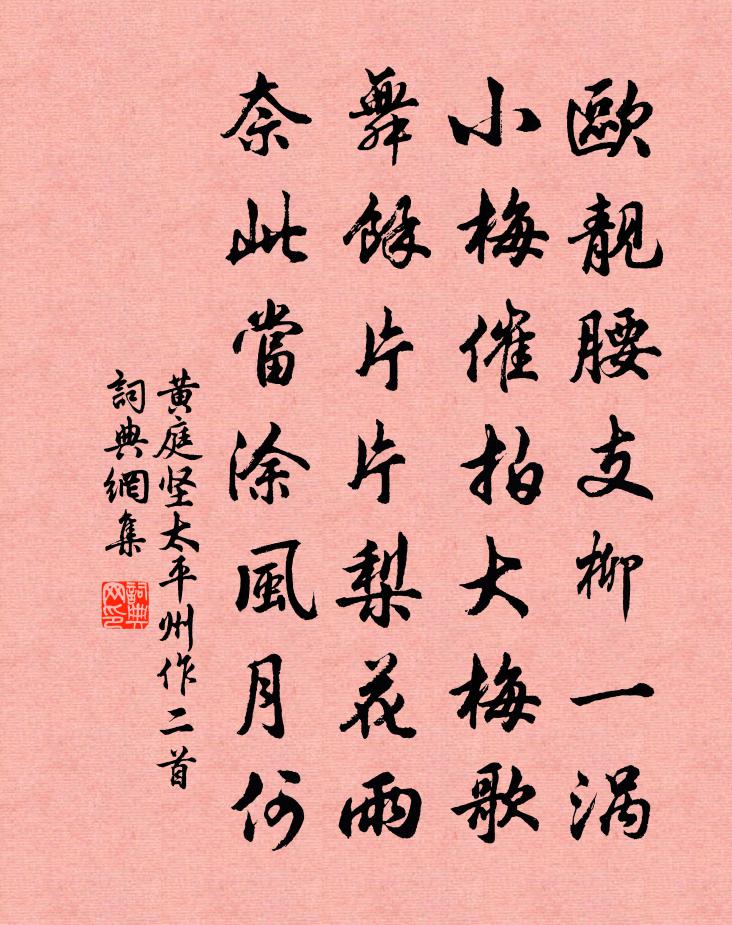 歐靚腰支柳一渦
小梅催拍大梅歌
舞餘片片梨花雨
奈此當涂風月何
黄庭坚太平州作二首
詞典網集
詞典网印